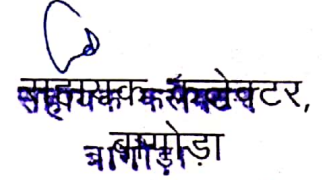 सहायक कलेक्टर,
बागोड़ा